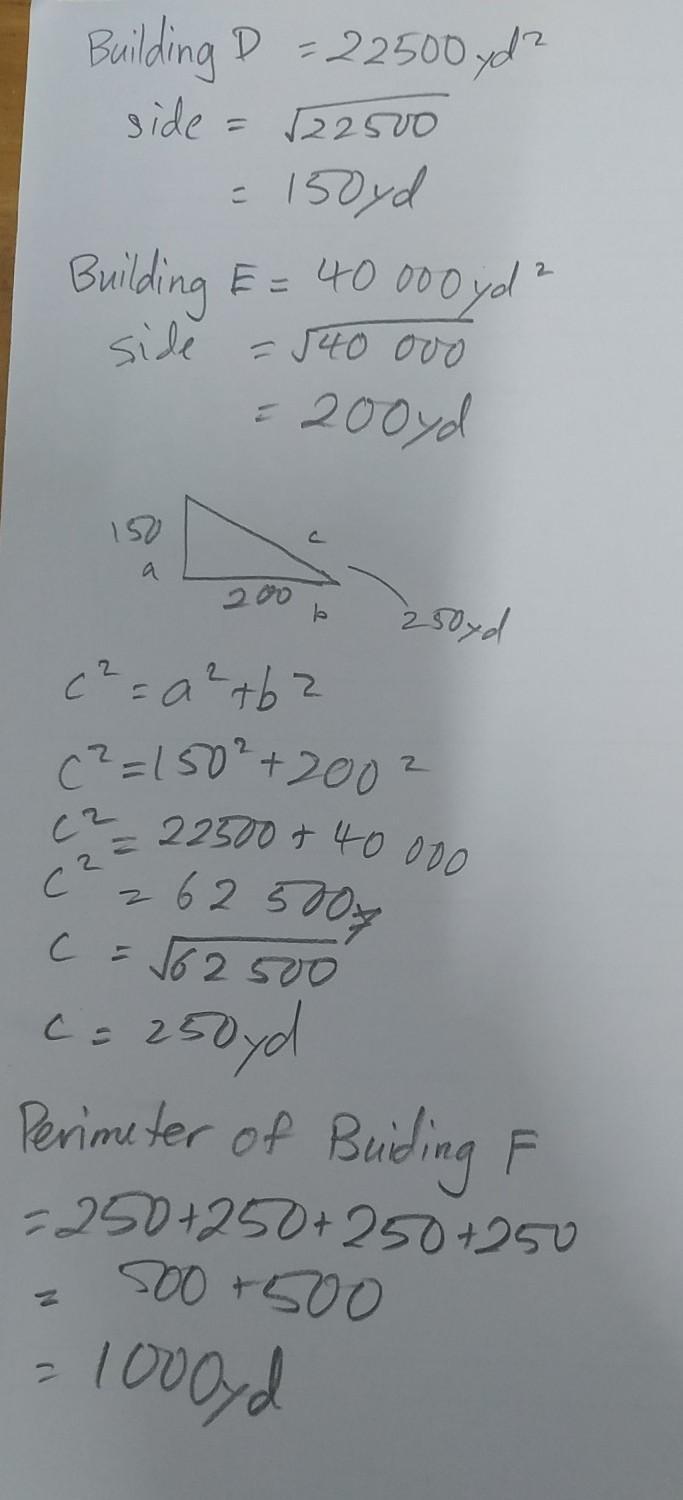 Building D = 22500yd²
side = √22500
= 150yd
Building E = 40 000yd²
side = √40 000
= 200yd
150
c
a
200
b
250yd
c² = a² + b²
c² = 150² + 200²
c² = 22500 + 40 000
c² = 62 500
c = √62 500
c = 250yd
Perimeter of Buiding F
= 250 + 250 + 250 + 250
= 500 + 500
= 1000yd